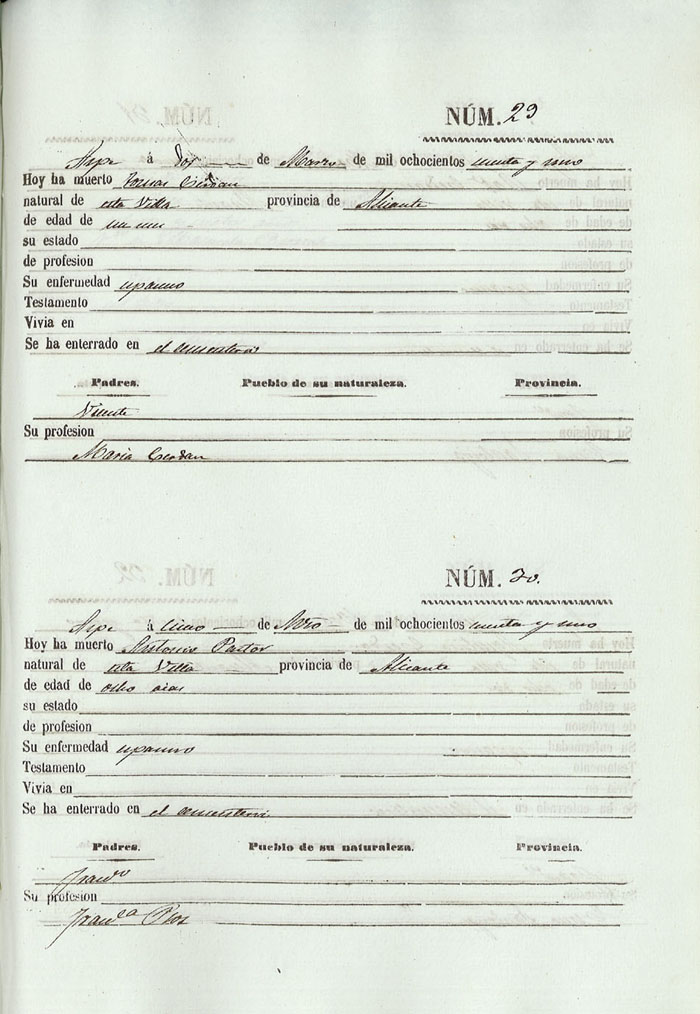 NÚM. 29
Aspe á dos de Marzo de mil ochocientos y uno
Hoy ha muerto Tomas Cerdan
natural de esta Villa provincia de Alicante
de edad de un mes
su estado
de profesion
Su enfermedad espasmo
Testamento
Vivia en
Se ha enterrado en el cementerio
Padres. Pueblo de su naturaleza. Provincia.
Vicente
Su profesion
Maria Cerdan
NÚM. 30.
Aspe á cinco de de mil ochocientos y uno
Hoy ha muerto Antonio Pastor
natural de esta Villa provincia de Alicante
de edad de ocho dias
su estado
de profesion
Su enfermedad espasmo
Testamento
Vivia en
Se ha enterrado en el cementerio
Padres. Pueblo de su naturaleza. Provincia.
Franco
Su profesion
Franca